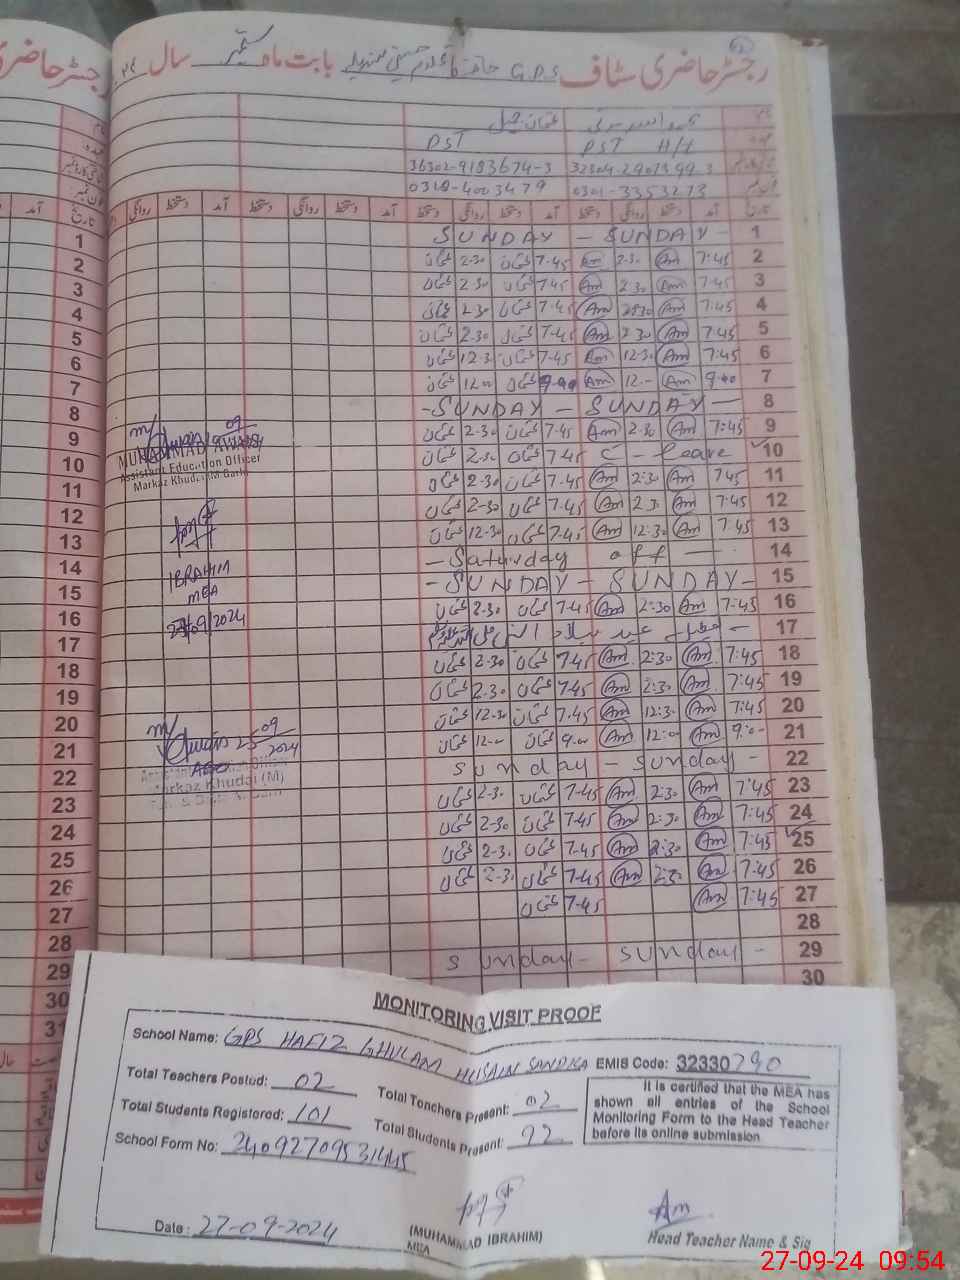 رجسٹر حاضری سٹاف G.P.S بابت ماہ ستمبر سال
PST PST H/T
36302-9183674-3 32304-2907399-3
0310-4003479 0301-3353273
تاریخ آمد دستخط روانگی دستخط آمد دستخط روانگی دستخط
1 SUNDAY - SUNDAY - 1
2 عثمان 2-30 عثمان 7-45 Am 2-30 Am 7:45 2
3 عثمان 2-30 عثمان 7-45 Am 2-30 Am 7:45 3
4 عثمان 2-30 عثمان 7-45 Am 2:30 Am 7:45 4
5 عثمان 2-30 عثمان 7-45 Am 2-30 Am 7:45 5
6 عثمان 12-30 عثمان 7-45 Am 12-30 Am 7:45 6
7 عثمان 12-00 عثمان 9-00 Am 12-00 Am 9-00 7
8 - SUNDAY - SUNDAY - 8
9 عثمان 2-30 عثمان 7-45 Am 2-30 Am 7:45 9
10 عثمان 2-30 عثمان 7-45 C - leave 10
11 عثمان 2-30 عثمان 7-45 Am 2:30 Am 7:45 11
12 عثمان 2-30 عثمان 7-45 Am 2:30 Am 7:45 12
13 عثمان 12-30 عثمان 7-45 Am 12:30 Am 7:45 13
14 - Saturday off - 14
15 - SUNDAY - SUNDAY - 15
16 عثمان 2-30 عثمان 7-45 Am 2:30 Am 7:45 16
17 تعطیل عید میلاد النبی - 17
18 عثمان 2-30 عثمان 7-45 Am 2:30 Am 7:45 18
19 عثمان 2-30 عثمان 7-45 Am 2:30 Am 7:45 19
20 عثمان 12-30 عثمان 7-45 Am 12:30 Am 7:45 20
21 عثمان 12-00 عثمان 9-00 Am 12:00 Am 9:00 21
22 sunday - sunday - 22
23 عثمان 2-30 عثمان 7-45 Am 2:30 Am 7:45 23
24 عثمان 2-30 عثمان 7-45 Am 2:30 Am 7:45 24
25 عثمان 2-30 عثمان 7-45 Am 2:30 Am 7:45 25
26 عثمان 2-30 عثمان 7-45 Am 2:30 Am 7:45 26
27 عثمان 7-45 Am 7:45 27
28 28
29 sunday - sunday - 29
30 30
31
MUHAMMAD AWAIS
Assistant Education Officer
Markaz Khudai (M)
IBRAHIM
MEA
09/2024
25 09 2024
AEO
Markaz Khudai (M)
MONITORING VISIT PROOF
School Name: GPS HAFIZ GHULAM HUSAIN SANDILA EMIS Code: 32330790
Total Teachers Posted: 02 Total Teachers Present: 02
Total Students Registered: 101 Total Students Present: 92
School Form No: 24092709531445
It is certified that the MEA has
shown all entries of the School
Monitoring Form to the Head Teacher
before its online submission
Date: 27-09-2024
(MUHAMMAD IBRAHIM)
MEA
Am
Head Teacher Name & Sig
27-09-24 09:54